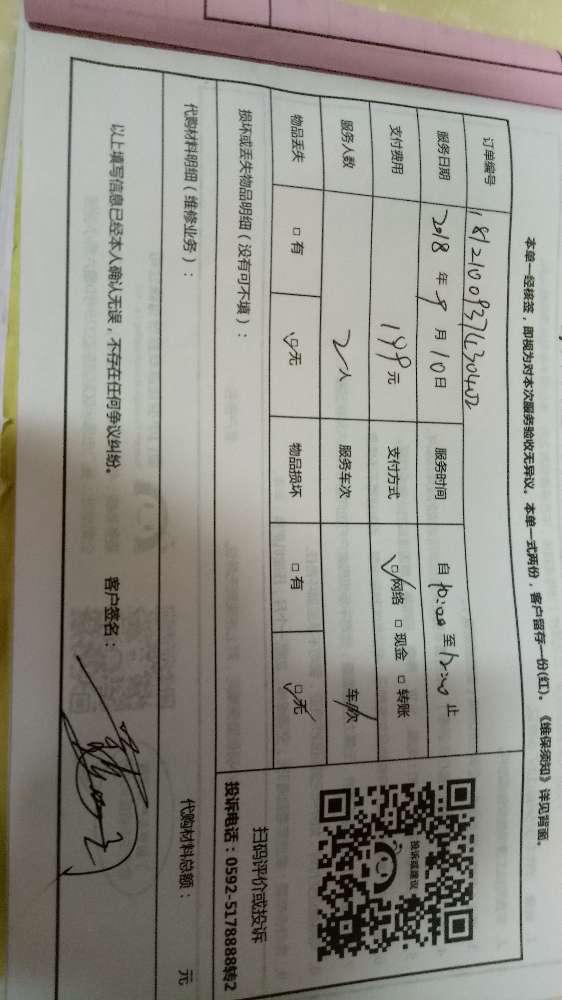 本单一经核签，即视为对本次服务验收无异议。本单一式两份，客户留存一份(红)。《维保须知》详见背面。
订单编号
服务日期 2018 年 9 月 10 日 服务时间 自 10:00 至 12:00 止
支付费用 199 元 支付方式 □网络 □现金 □转账
服务人数 2 人 服务车次 车/次
物品丢失 □有 □无 物品损坏 □有 □无
损坏或丢失物品明细（没有可不填）：
投诉或建议
扫码评价或投诉
投诉电话：0592-5178888转2
代购材料明细（维修业务）：
代购材料总额： 元
以上填写信息已经本人确认无误，不存在任何争议纠纷。 客户签名：